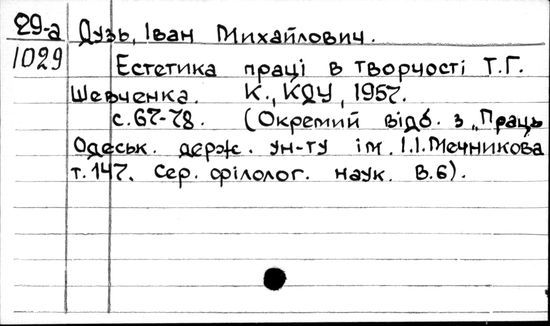 29-а Дузь, Іван Михайлович.
1029 Естетика праці в творчості Т.Г.
Шевченка. К., КДУ, 1957.
с. 67-78. (Окремий відб. з „Праць
Одеськ. держ. ун-ту ім. І.І.Мечникова
т. 147. Сер. філолог. наук. В.6).